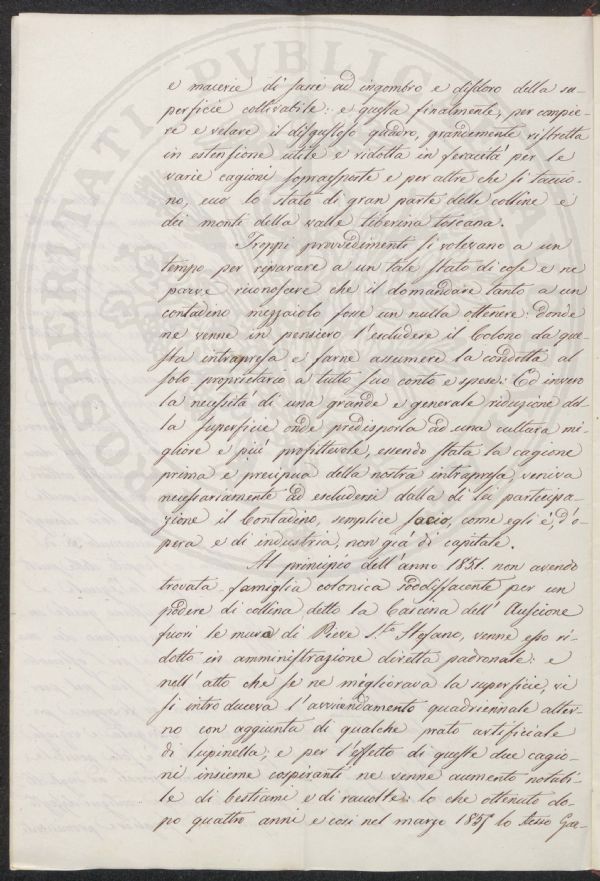 e macerie di sassi ad ingombro e disdoro della su-
perficie coltivabile: e questa finalmente, per compie-
re e velare il disgustoso quadro, grandemente ristretta
in estensione utile e ridotta in feracità per le
varie cagioni soprasposte e per altre che si taccio-
no, ecco lo stato di gran parte delle colline e
dei monti della valle tiberina toscana.
Troppi provvedimenti si volevano a un
tempo per riparare a un tale stato di cose e ne
parve riconoscere che il domandare tanto a un
contadino mezzaiolo fosse un nulla ottenere: donde
ne venne in pensiero l'escludere il Colono da que-
sta intrapresa e farne assumere la condotta al
solo proprietario a tutto suo conto e spese: Ed invero
la necessità di una grande e generale riduzione del-
la superfice onde predisporla ad una cultura mi-
gliore e più profittevole, essendo stata la cagione
prima e precipua della nostra intrapresa, veniva
necessariamente ad escludersi dalla di lei partecipa-
zione il Contadino, semplice socio, come egli è, d'o-
pera e di industria, non già di capitale.
Al principio dell'anno 1851. non avendo
trovata famiglia colonica sodisfacente per un
podere di collina detto la Cascina dell'
fuori le mura di Pieve S.to Stefano, venne esso ri-
dotto in amministrazione diretta padronale: e
nell'atto che se ne migliorava la superficie, vi
si introduceva l'avvicendamento quadriennale alter-
no con aggiunta di qualche prato artificiale
di lupinella; e per l'effetto di queste due cagio-
ni insieme cospiranti ne venne aumento notabi-
le di bestiami e di raccolte: lo che ottenuto do-
po quattro anni e così nel marzo 1855 lo stesso